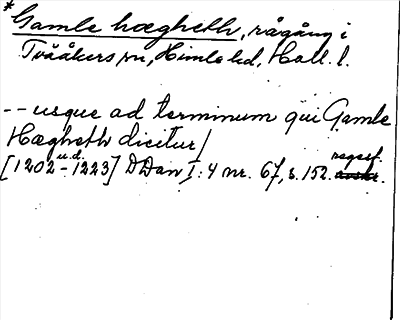 * Gamle hœgheth, rågång i
Tvååkers sn, Himle hd, Hall. l.
-- usque ad terminum qui Gamle
Hœgheth dicitur/
[1202 u.d. - 1223] DDan I:4 nr. 67, s. 152. regest.